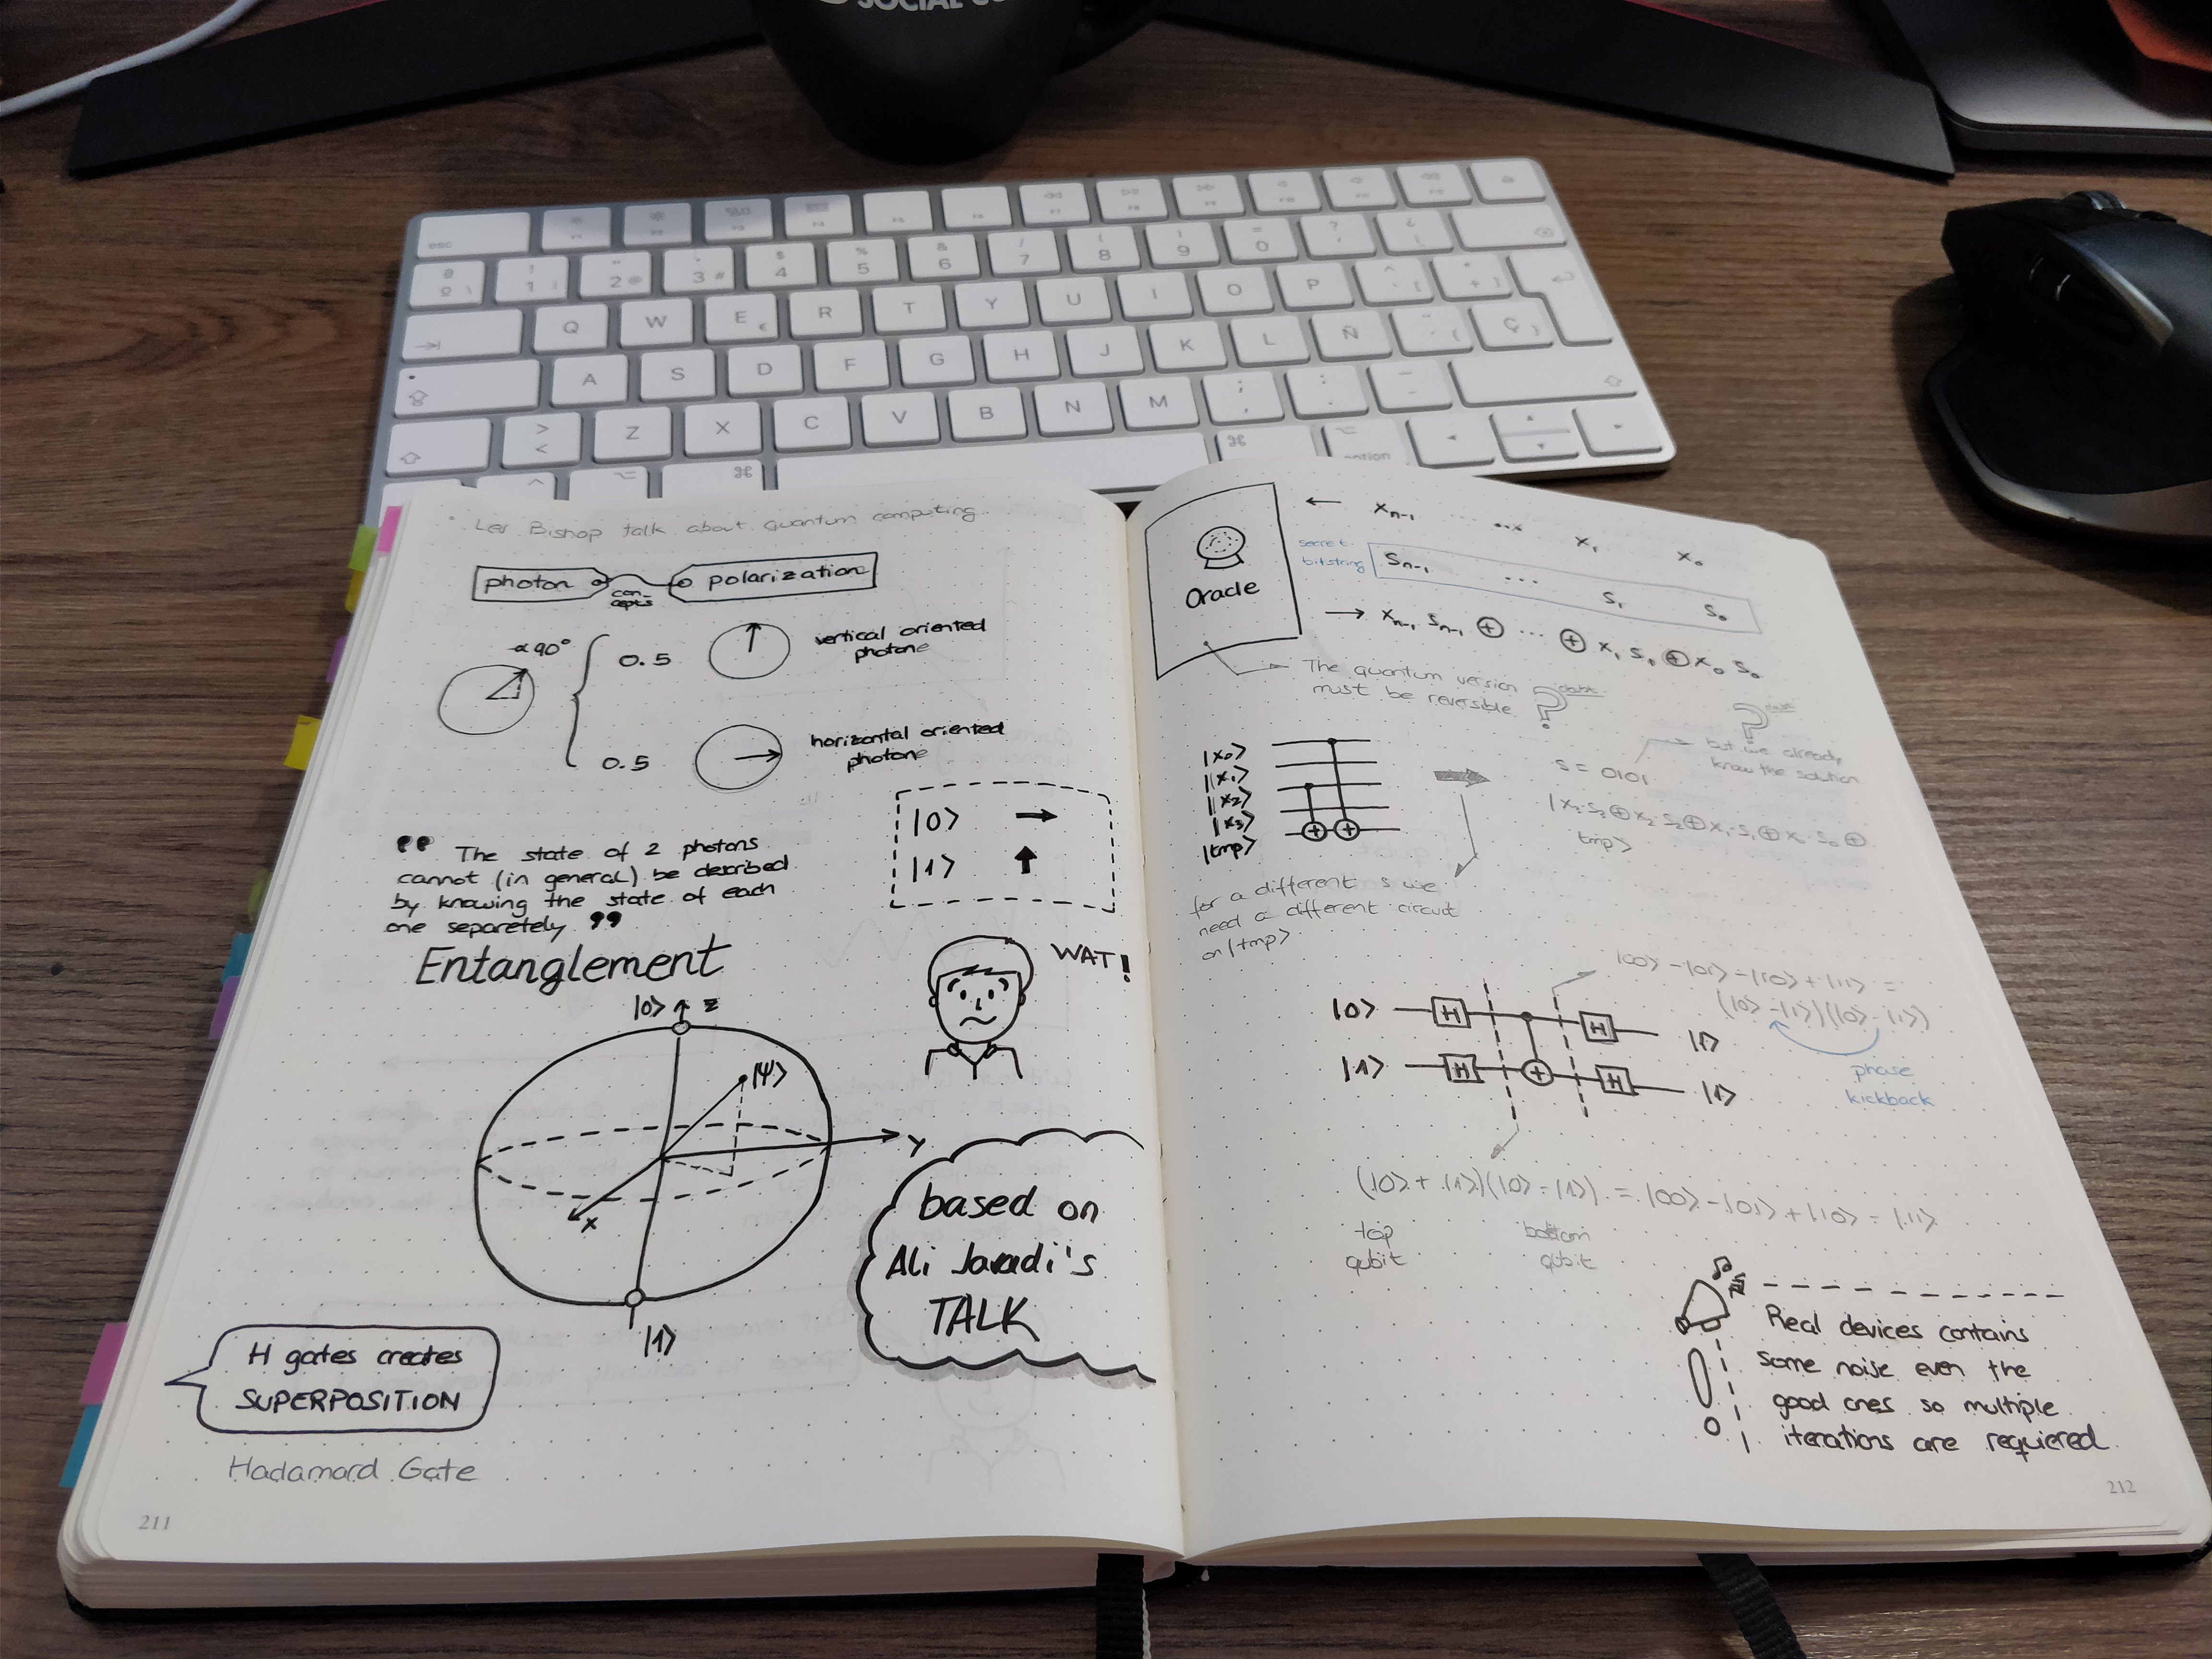 SOCIAL
esc
Q W E R T Y U I O P
A S D F G H J K L Ñ Ç
Z X C V B N M
⌘ ⌘ option
Lev Bishop talk about quantum computing
photon
con-
cepts
polarization
∝90°
0.5
vertical oriented
photone
0.5
horizontal oriented
photone
|0⟩ →
|1⟩ ↑
"The state of 2 photons
cannot (in general) be described
by knowing the state of each
one separetely"
Entanglement
WAT!
|0⟩ z
|Ψ⟩
y
x
|1⟩
based on
Ali Javadi's
TALK
H gates creates
SUPERPOSITION
Hadamard Gate
211
Oracle
← Xn-1 ... X1 X0
secret
bitstring
Sn-1 ... S1 S0
→ Xn-1 Sn-1 ⊕ ... ⊕ X1 S1 ⊕ X0 S0
The quantum version
must be reversible
but we already
know the solution
|x0⟩
|x1⟩
|x2⟩
|x3⟩
|tmp⟩
s = 0101
|x3·s3⊕x2·s2⊕x1·s1⊕x0·s0⊕
tmp⟩
for a different s we
need a different circuit
on |tmp⟩
|00⟩ - |01⟩ - |10⟩ + |11⟩ =
(|0⟩ - |1⟩)(|0⟩ - |1⟩)
phase
kickback
|0⟩ H H |1⟩
|1⟩ H H |1⟩
(|0⟩ + |1⟩)(|0⟩ - |1⟩) = |00⟩ - |01⟩ + |10⟩ - |11⟩
top
qubit
bottom
qubit
Real devices contains
some noise even the
good ones so multiple
iterations are requiered
212